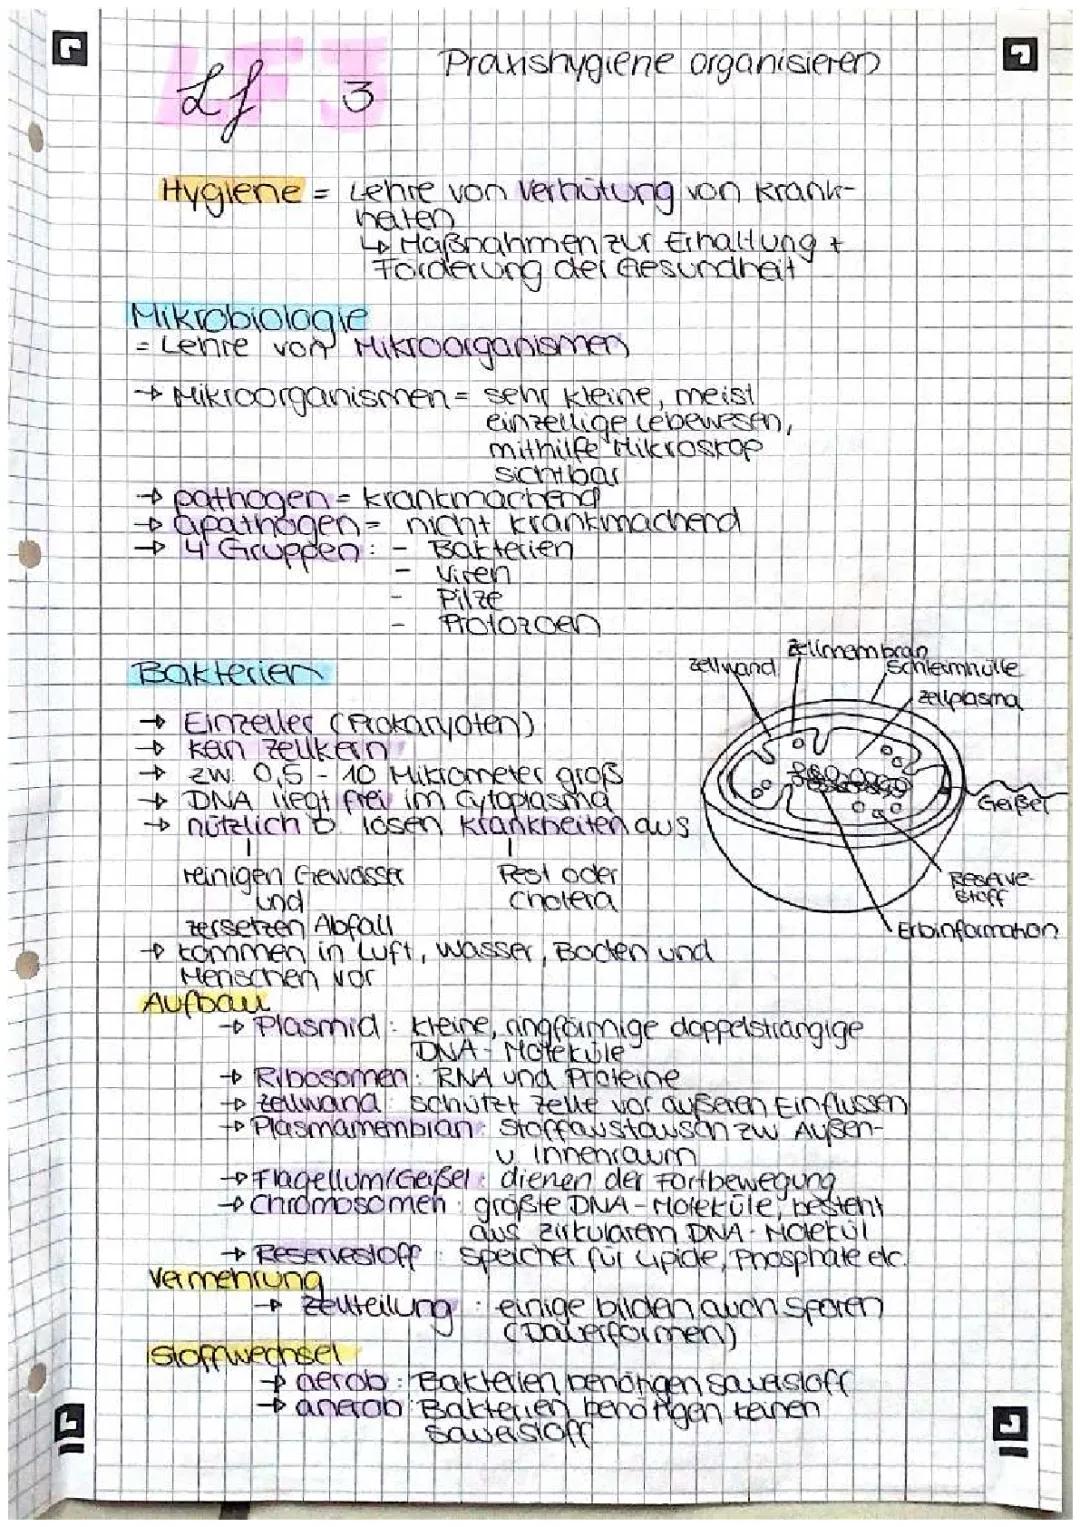 LF 3 Praxishygiene organisieren
Hygiene = Lehre von Verhütung von Krank-
heiten
↳ Maßnahmen zur Erhaltung +
Förderung der Gesundheit
Mikrobiologie
= Lehre von Mikroorganismen
→ Mikroorganismen = sehr kleine, meist
einzellige Lebewesen,
mithilfe Mikroskop
sichtbar
→ pathogen = krankmachend
→ apathogen = nicht krankmachend
→ 4 Gruppen: - Bakterien
- Viren
- Pilze
- Protozoen
Bakterien
→ Einzeller (Prokaryoten)
→ kein Zellkern
→ zw. 0,5 - 10 Mikrometer groß
→ DNA liegt frei im Cytoplasma
→ nützlich o. lösen Krankheiten aus
reinigen Gewässer Pest oder
und Cholera
zersetzen Abfall
→ kommen in Luft, Wasser, Boden und
Menschen vor
Zellwand
Zellmembran
Schleimhülle
Zellplasma
Geißel
Reserve-
stoff
Erbinformation
Aufbau
→ Plasmid: kleine, ringförmige doppelsträngige
DNA-Moleküle
→ Ribosomen: RNA und Proteine
→ Zellwand: schützt Zelle vor äußeren Einflüssen
→ Plasmamembran: Stoffaustausch zw. Außen-
u. Innenraum
→ Flagellum/Geißel: dienen der Fortbewegung
→ Chromosomen: größte DNA-Moleküle, besteht
aus zirkulärem DNA-Molekül
→ Reservestoff: Speicher für Lipide, Phosphate etc.
Vermehrung
→ Zellteilung: einige bilden auch Sporen
(Dauerformen)
Stoffwechsel
→ aerob: Bakterien benötigen Sauerstoff
→ anerob: Bakterien benötigen keinen
Sauerstoff